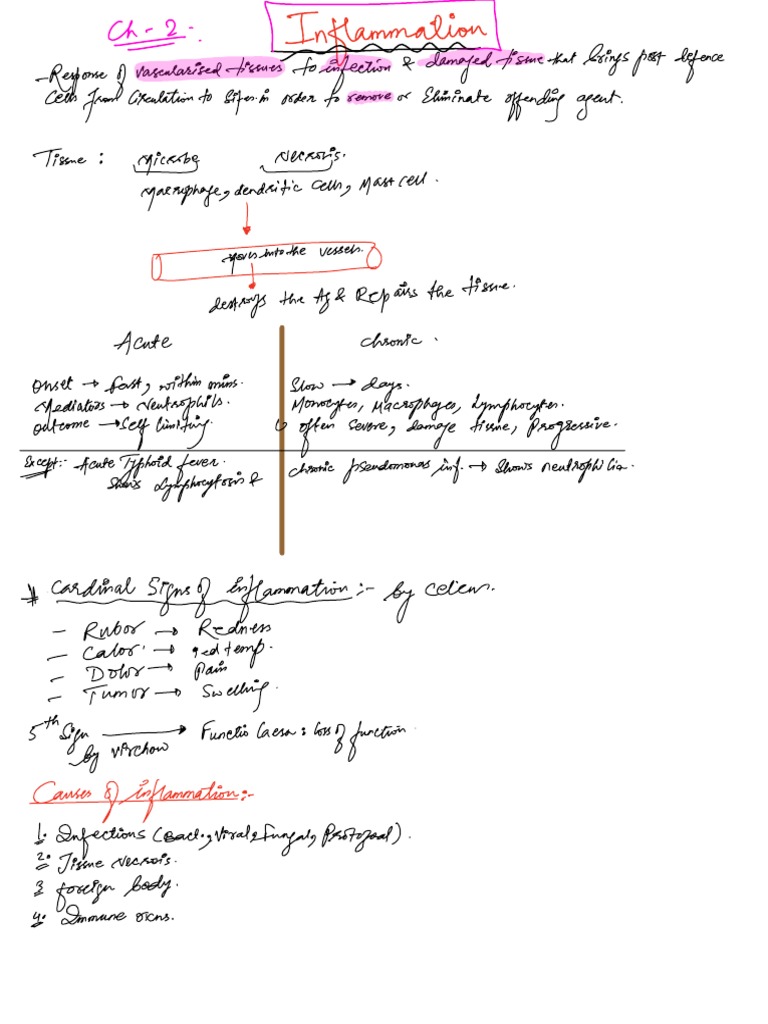 Ch-2:-
Inflammation
- Response of vascularised tissues to infection & damaged tissue that brings host defence
cells from Circulation to Sites in order to remove or Eliminate offending agent.
Tissue : Microbe Necrosis.
Macrophage, dendritic cells, Mast cell.
Moves into the vessels.
destroys the Ag & Repairs the tissue.
Acute
chronic.
Onset → fast, within mins.
Slow → days.
Mediators → Neutrophils.
Monocytes, Macrophages, Lymphocytes.
outcome → Self limiting.
often severe, damage tissue, Progressive.
Except:- Acute Typhoid fever.
chronic pseudomonas inf. → Shows neutrophilia.
Shows Lymphocytosis &
* Cardinal Signs of inflammation:- by Celsus.
- Rubor → Redness
- Calor → ↑ed temp.
- Dolor → Pain
- Tumor → Swelling.
5th Sign → Functio Laesa : loss of function
by Virchow
Causes of inflammation:-
1. Infections (Bact., Viral, Fungal, Protozoal).
2. Tissue necrosis.
3 foreign body.
4. Immune rxns.